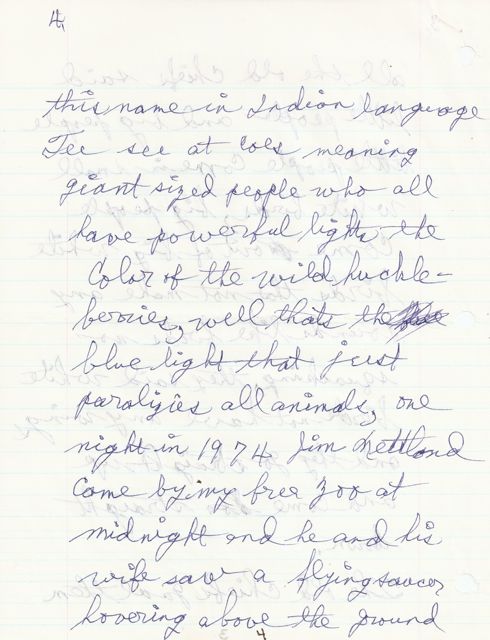 4.
this name in Indian language
Tee see at coes meaning
giant sized people who all
have powerful lights the
Color of the wild huckle-
berries, well thats the
blue light that just
paraligies all animals, one
night in 1974 Jim
Come by my free Zoo at
midnight and he and his
wife saw a flying saucer
hovering above the ground
4